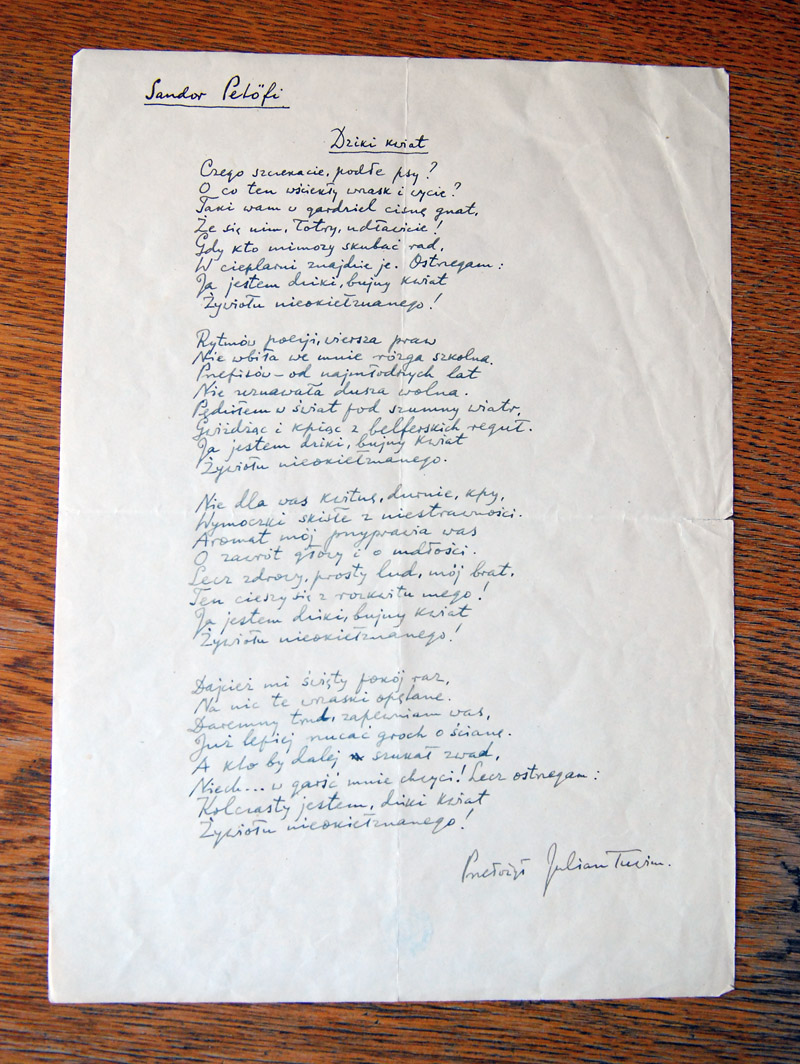 Sandor Petöfi
Dziki kwiat
Czego szczekacie, podłe psy?
O co ten wściekły wrzask i wycie?
Taki wam w gardziel cisnę gnat,
Że się nim, łotry, udławicie!
Gdy kto mimozy skubać rad,
W cieplarni znajdzie je. Ostrzegam:
Ja jestem dziki, bujny kwiat
Żywiołu nieokiełznanego!
Rytmów poezji, wiersza praw
Nie wbiła we mnie rózga szkolna.
Prefiksów – od najmłodszych lat
Nie uznawała dusza wolna.
Pędziłem w świat pod szumny wiatr,
Gwiżdżąc i kpiąc z belferskich reguł.
Ja jestem dziki, bujny kwiat
Żywiołu nieokiełznanego.
Nie dla was kwitnę, durnie, kpy,
Wymoczki skisłe z niestrawności.
Aromat mój przyprawia was
O zawrót głowy i o mdłości.
Lecz zdrowy, prosty lud, mój brat,
Ten cieszy się z rozkwitu mego!
Ja jestem dziki, bujny kwiat
Żywiołu nieokiełznanego!
Dajcież mi święty pokój raz,
Na nic te wrzaski opętane.
Daremny trud, zapewniam was,
Już lepiej rzucać groch o ścianę.
A kto by dalej szukał zwad,
Niech... w garść mnie chwyci! Lecz ostrzegam:
Kolczasty jestem, dziki kwiat
Żywiołu nieokiełznanego!
Przełożył Julian Tuwim.